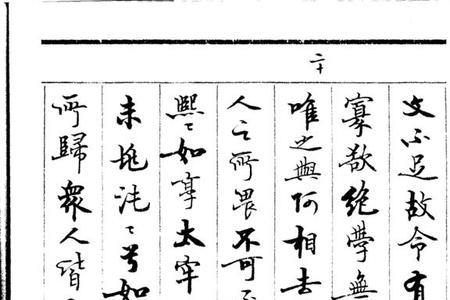 二十
文不足故令有
寡欲絶學無
唯之與阿相去
人之所畏不可
熙〻如享太牢
未兆沌〻兮如
所歸衆人皆